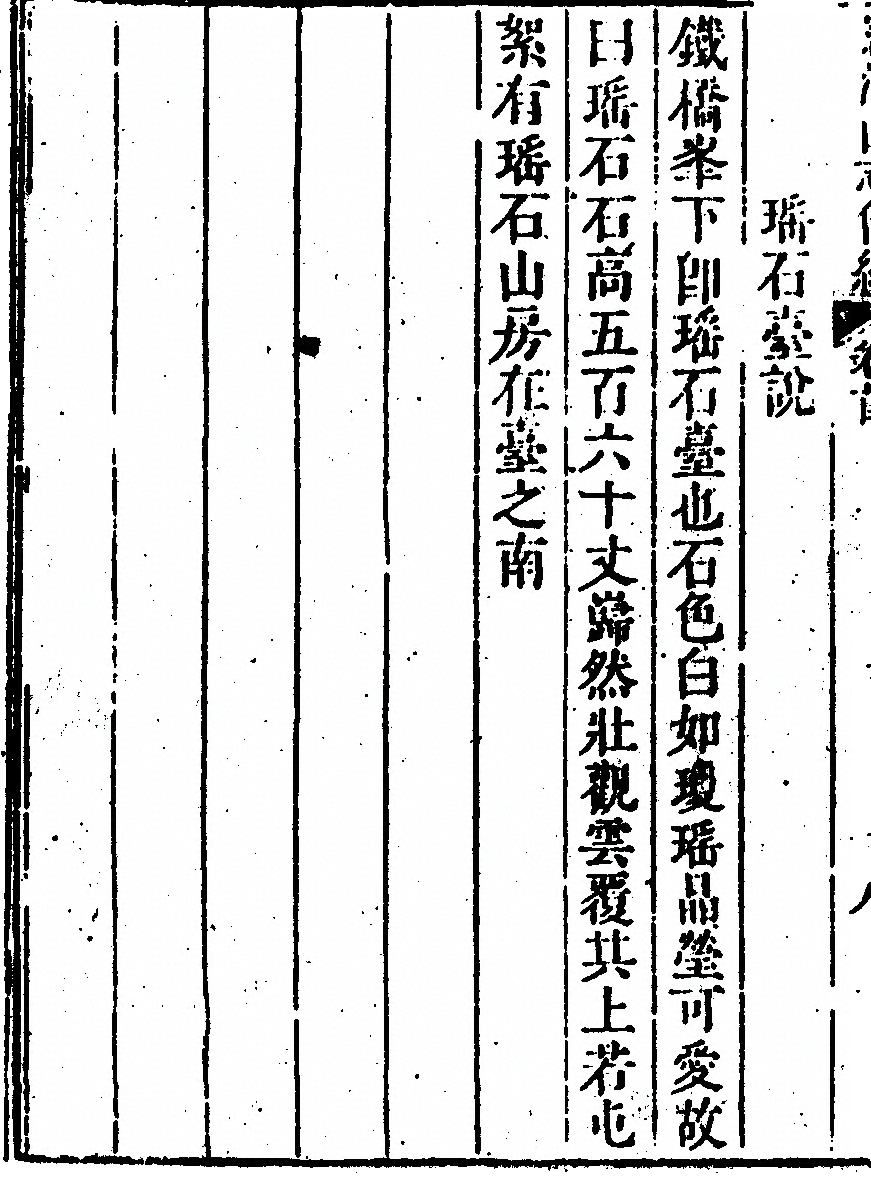 瑶石臺說
鐵橋峯下即瑶石臺也石色白如瓊瑶晶瑩可愛故
曰瑶石石高五百六十丈巋然壯觀雲覆其上若屯
絮有瑶石山房在臺之南